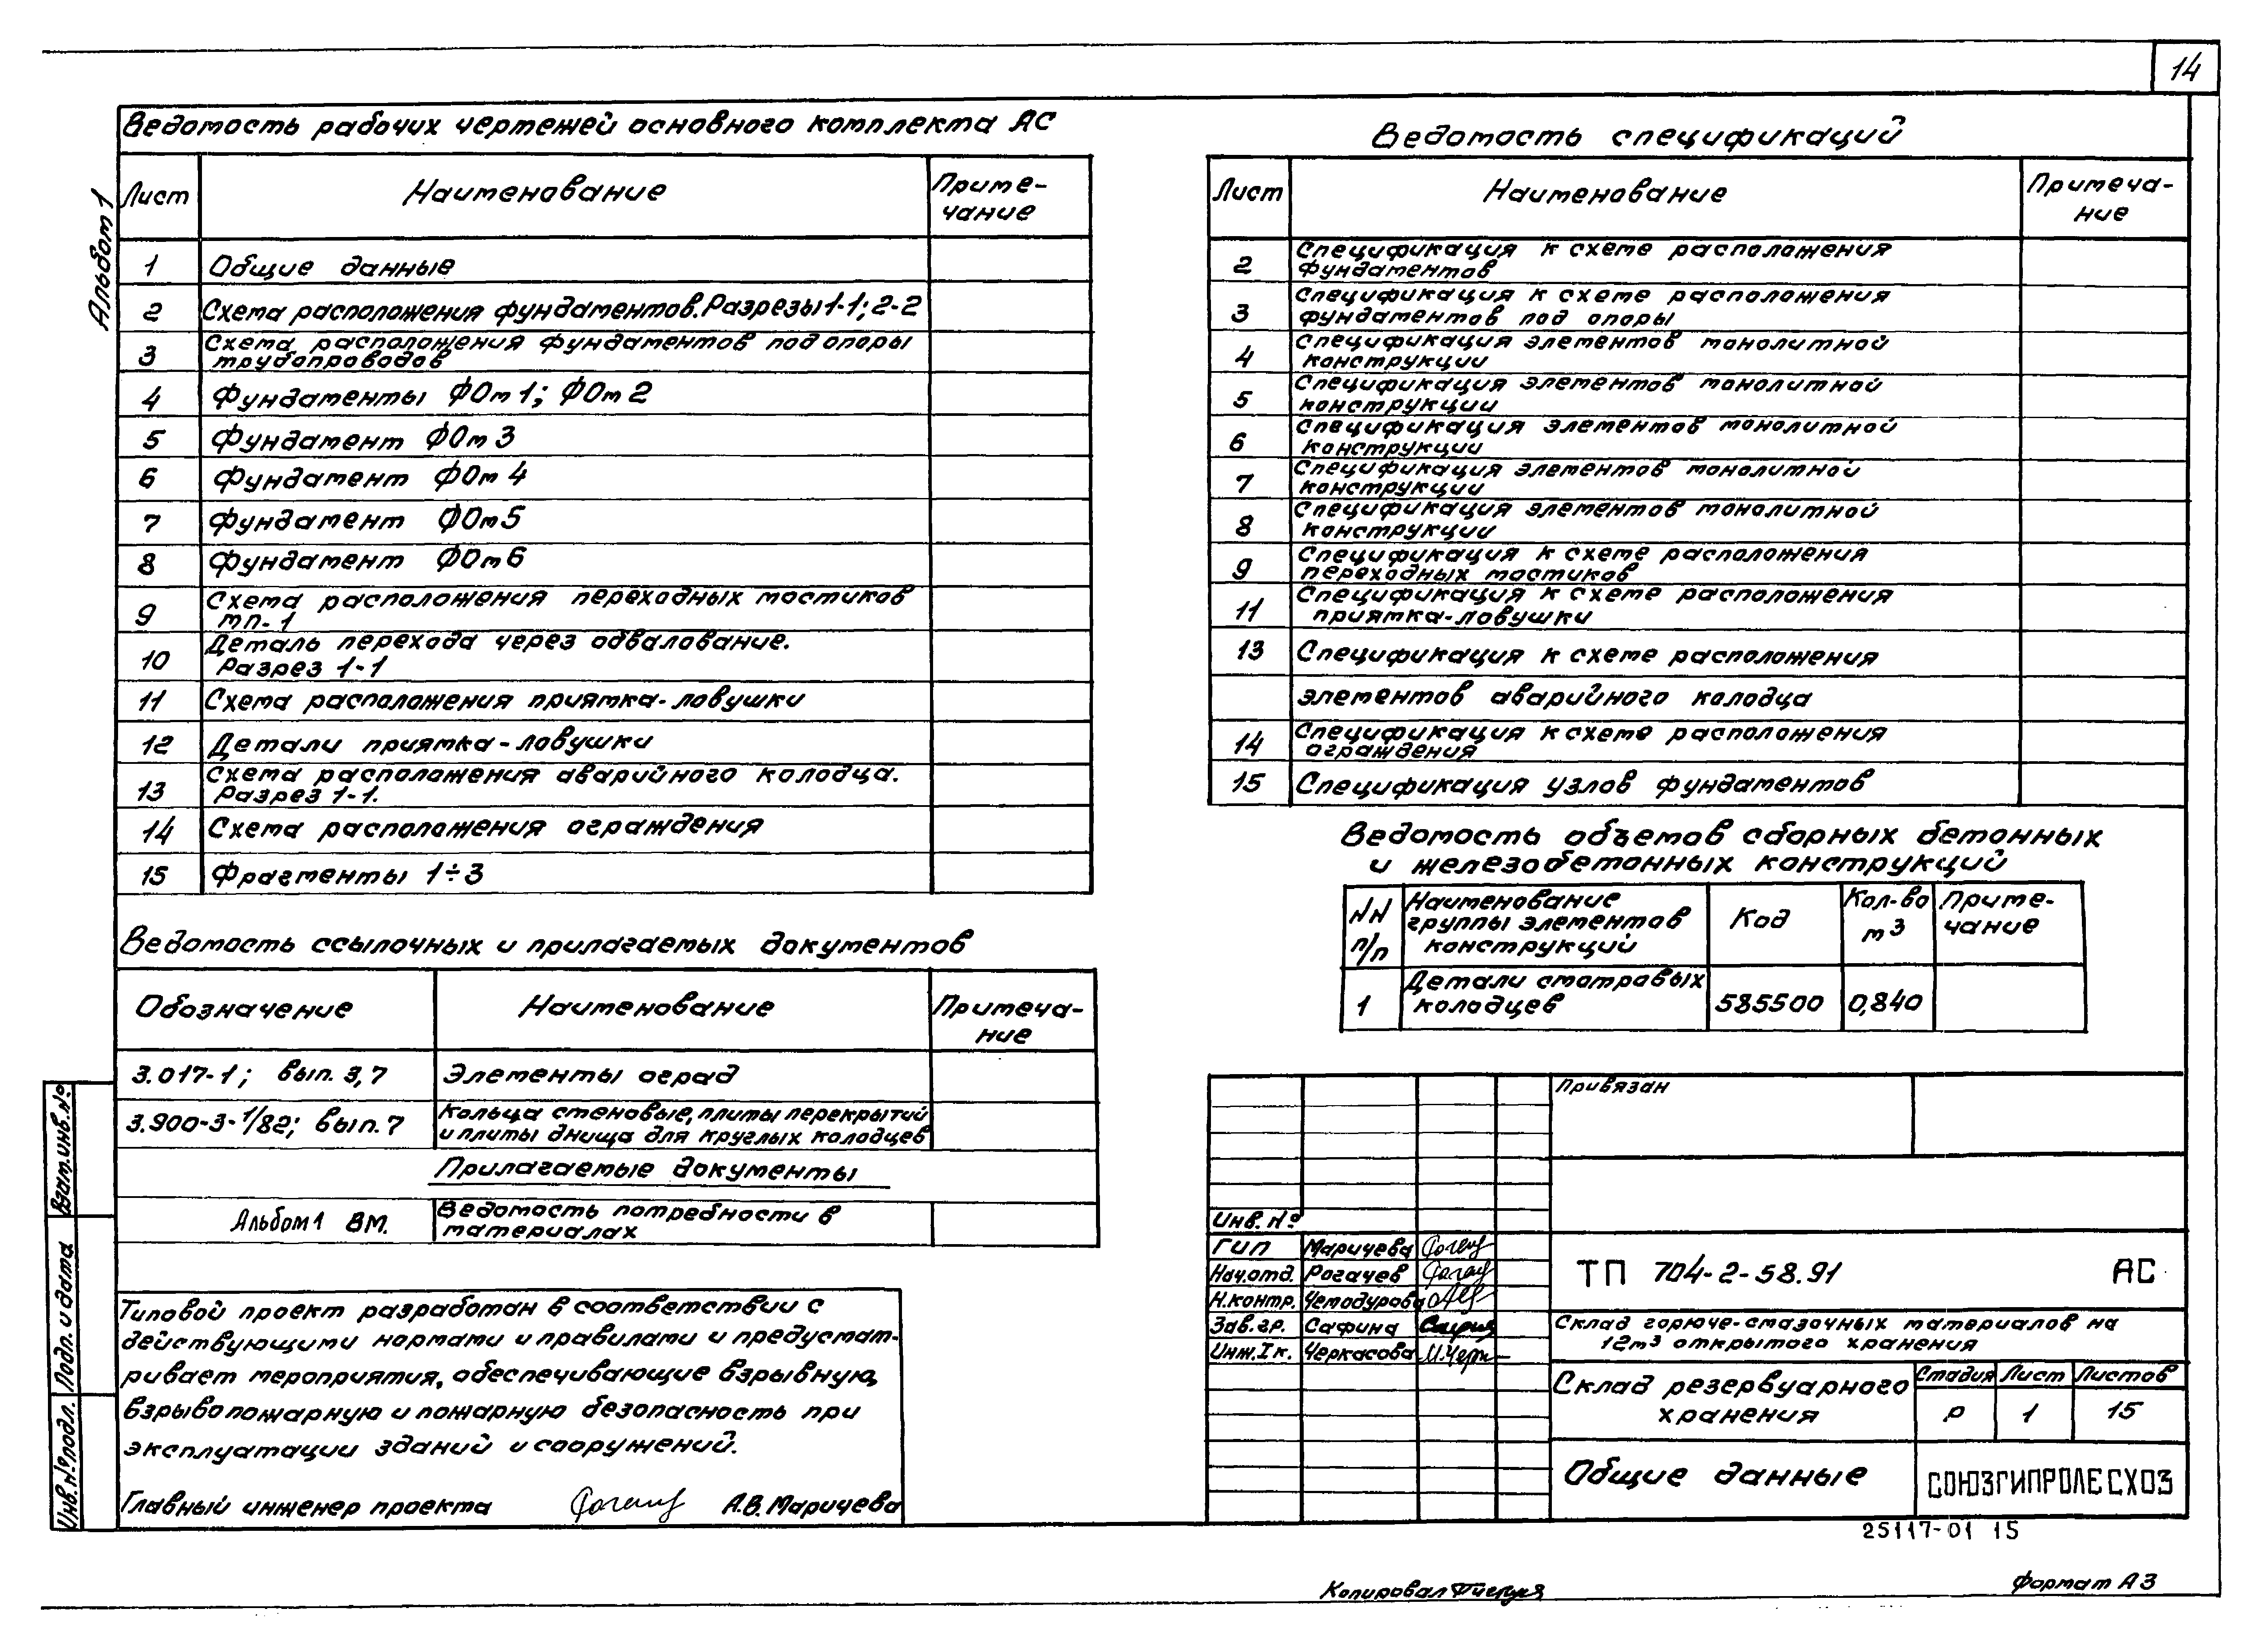 14
Альбом 1
Ведомость рабочих чертежей основного комплекта АС
Лист Наименование Приме-
чание
1 Общие данные
2 Схема расположения фундаментов. Разрезы 1-1; 2-2
3 Схема расположения фундаментов под опоры
трубопроводов
4 Фундаменты ФОm1; ФОm2
5 Фундамент ФОm3
6 Фундамент ФОm4
7 Фундамент ФОm5
8 Фундамент ФОm6
9 Схема расположения переходных мостиков
МП-1
10 Деталь перехода через обвалование.
Разрез 1-1
11 Схема расположения приямка-ловушки
12 Детали приямка-ловушки
13 Схема расположения аварийного колодца.
Разрез 1-1.
14 Схема расположения ограждения
15 Фрагменты 1÷3
Ведомость ссылочных и прилагаемых документов
Обозначение Наименование Примеча-
ние
3.017-1; вып. 3,7 Элементы оград
3.900-3-1/82; вып. 7 Кольца стеновые, плиты перекрытий
и плиты днища для круглых колодцев
Прилагаемые документы
Альбом 1 ВМ. Ведомость потребности в
материалах
Типовой проект разработан в соответствии с
действующими нормами и правилами и предусмат-
ривает мероприятия, обеспечивающие взрывную,
взрывопожарную и пожарную безопасность при
эксплуатации зданий и сооружений.
Главный инженер проекта А.В. Маричева
Взам.инв.№
Подп. и дата
Инв.№подл.
Ведомость спецификаций
Лист Наименование Примеча-
ние
2 Спецификация к схеме расположения
фундаментов
3 Спецификация к схеме расположения
фундаментов под опоры
4 Спецификация элементов монолитной
конструкции
5 Спецификация элементов монолитной
конструкции
6 Спецификация элементов монолитной
конструкции
7 Спецификация элементов монолитной
конструкции
8 Спецификация элементов монолитной
конструкции
9 Спецификация к схеме расположения
переходных мостиков
11 Спецификация к схеме расположения
приямка-ловушки
13 Спецификация к схеме расположения
элементов аварийного колодца
14 Спецификация к схеме расположения
ограждения
15 Спецификация узлов фундаментов
Ведомость объемов сборных бетонных
и железобетонных конструкций
NN
п/п Наименование
группы элементов
конструкций Код Кол-во
м3 Приме-
чание
1 Детали смотровых
колодцев 585500 0,840
Привязан
Инв. №
ГИП Маричева
Нач.отд. Рогачев
Н.контр. Чемодурова
Зав.гр. Сафина
Инж.Iк. Черкасова
ТП 704-2-58.91 АС
Склад горюче-смазочных материалов на
12м³ открытого хранения
Склад резервуарного
хранения
Стадия Лист Листов
Р 1 15
Общие данные
СОЮЗГИПРОЛЕСХОЗ
25117-01 15
Копировал
Формат А3